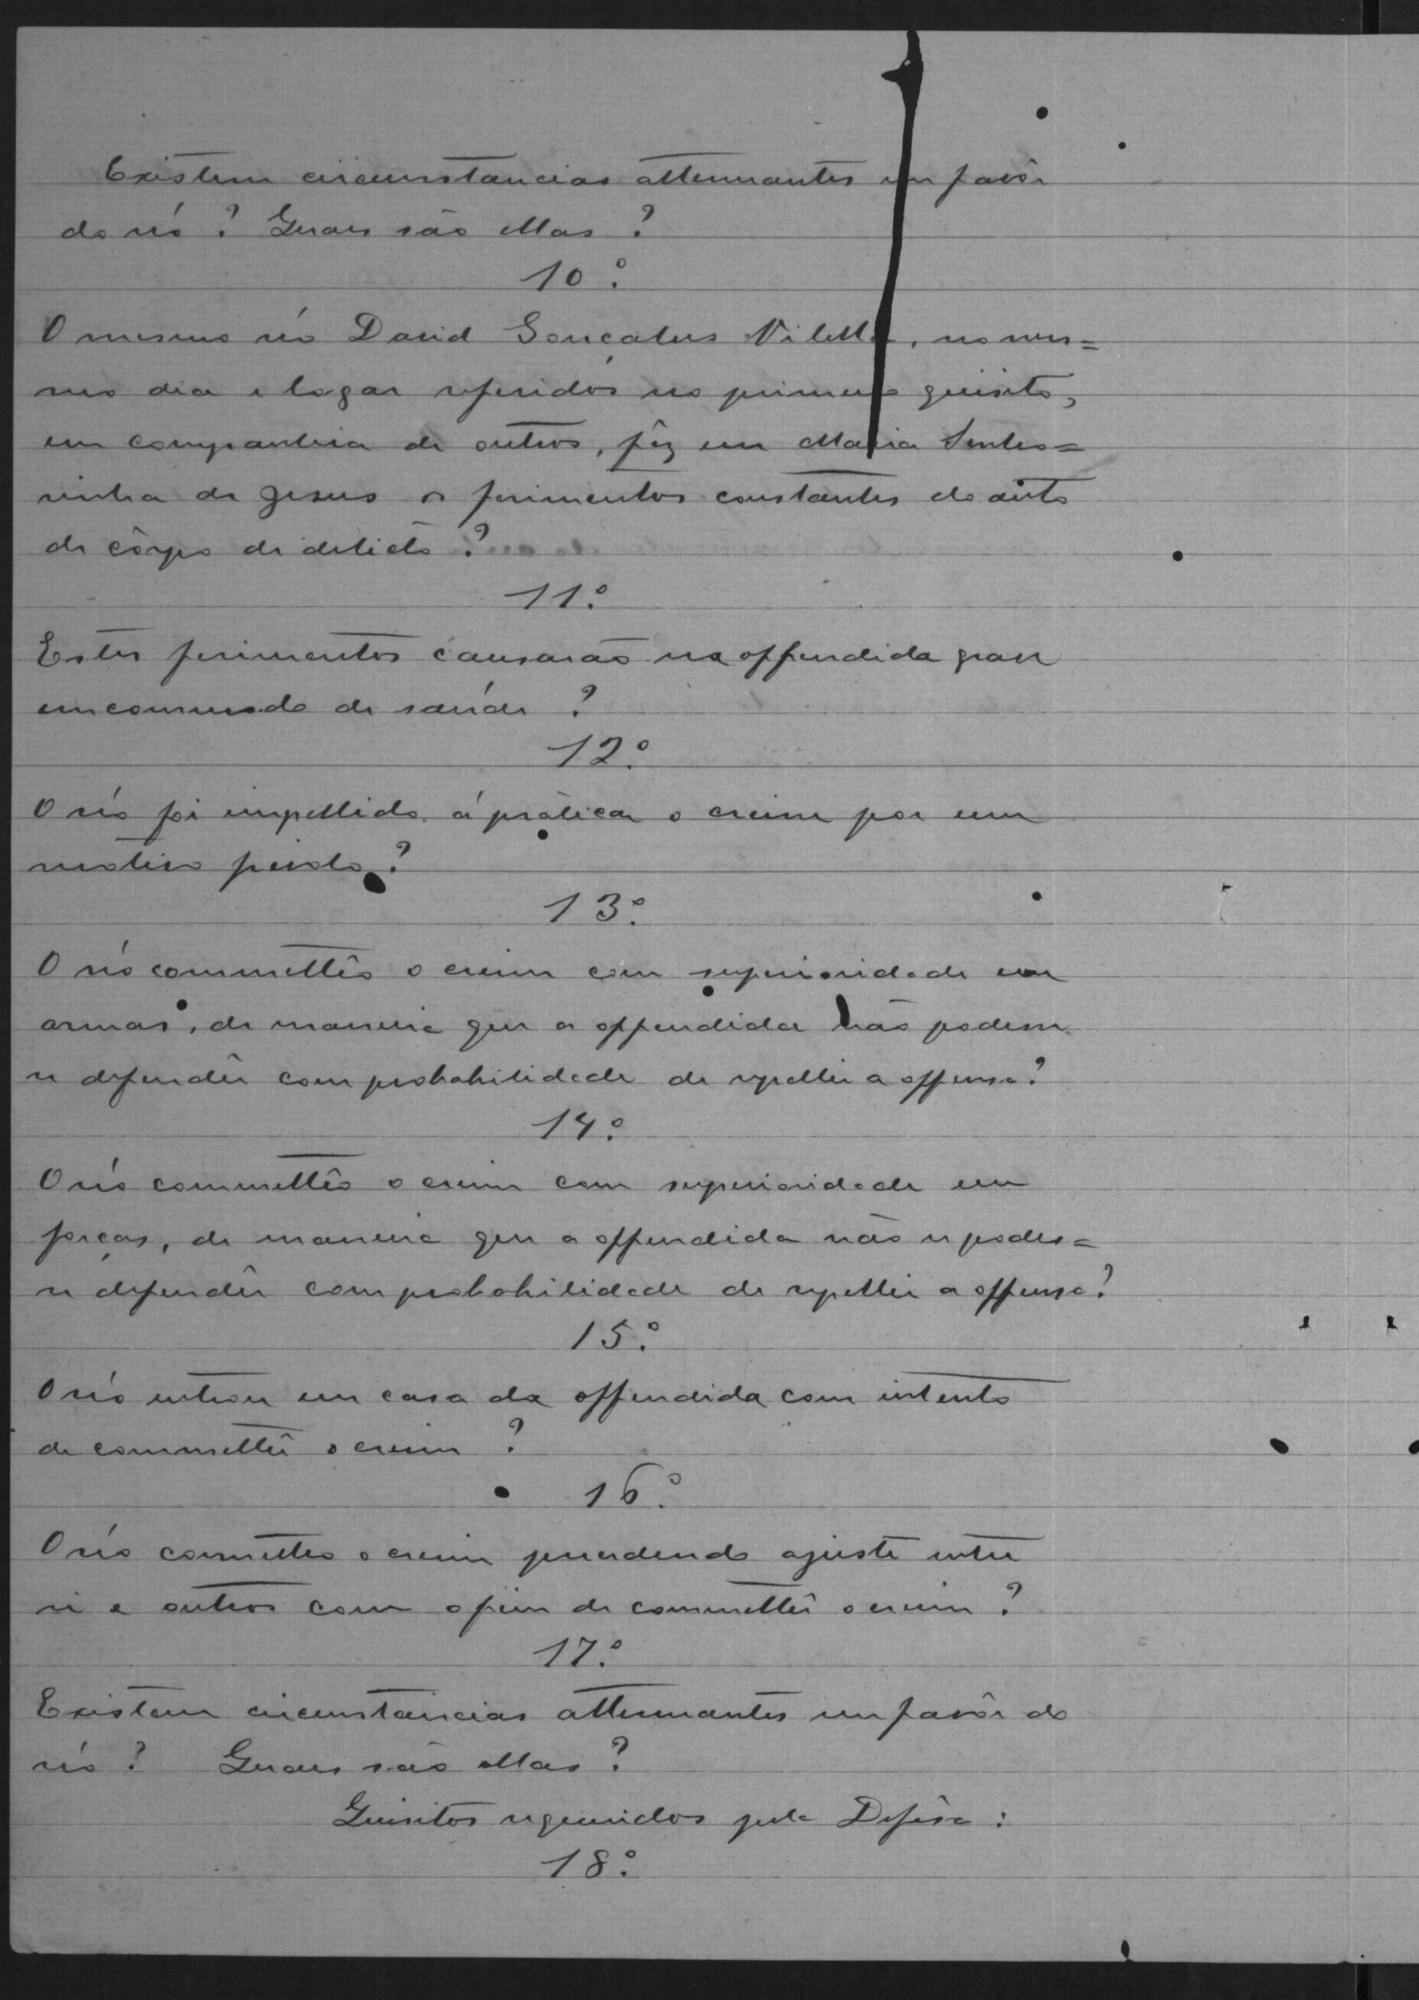 Existem circumstancias attenuantes em favôr
do réo? Quaes são ellas?
10º
O mesmo réo David Gonçalves Vilella, no mes=
mo dia e logar referidos no primeiro quisito,
em companhia de outros, fêz em Maria
de Jesus os ferimentos constantes do auto
de côrpo de delicto?
11º
Estes ferimentos causarão na offendida grave
encommodo de saúde?
12º
O réo foi impellido á práticar o crime por um
motivo
13º
O réo commettêo o crime com superioridade em
armas, de maneira que a offendida não podesse
se defendêr com probabilidade de repellir a offensa?
14º
O réo commettêo o crime com superioridade em
forças, de maneira que a offendida não se podes=
se defendêr com probabilidade de repellir a offensa?
15º
O réo entrou em casa da offendida com intento
de commettêr o crime?
16º
O réo commetteo o crime precedendo ajuste entre
si e outros com o fim de commettêr o crime?
17º
Existem circumstancias attenuantes em favôr do
réo? Quaes são ellas?
Quisitos requeridos pela Defêsa:
18º